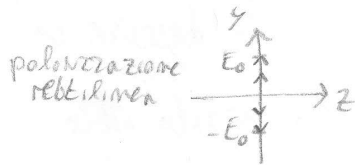 y
polarizzazione
rettilinea
E₀
z
-E₀